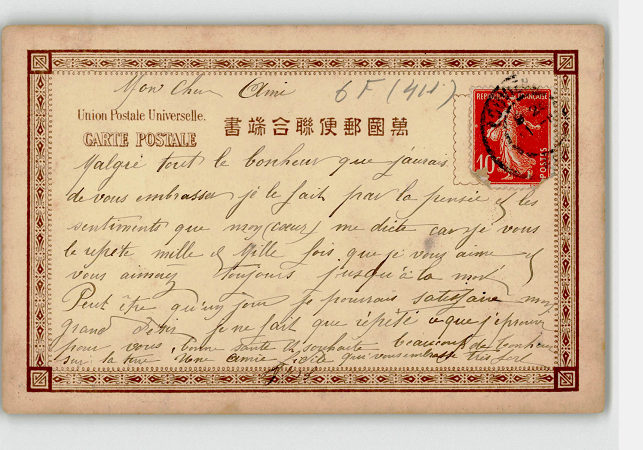 Mon Cher Ami
6F (414)
Union Postale Universelle.
CARTE POSTALE
書端合聯便郵國萬
REPUBLIQUE FRANÇAISE
10
POSTES
Malgré tout le bonheur que j'aurais
de vous embrasser je le fait par la pensée et les
sentiments que moy (cœur) me dicte car je vous
le repete mille et Mille fois que je vous aime et
vous aimerez toujours jusqu'à la mort
Peut être qu'un jour je pourrais satisfaire mon
grand Désir je ne fait que répété ce que j'éprouve
pour vous bonne santé et souhaite beaucoup de bonheur
sur la terre Une Amie qui vous embrasse très fort